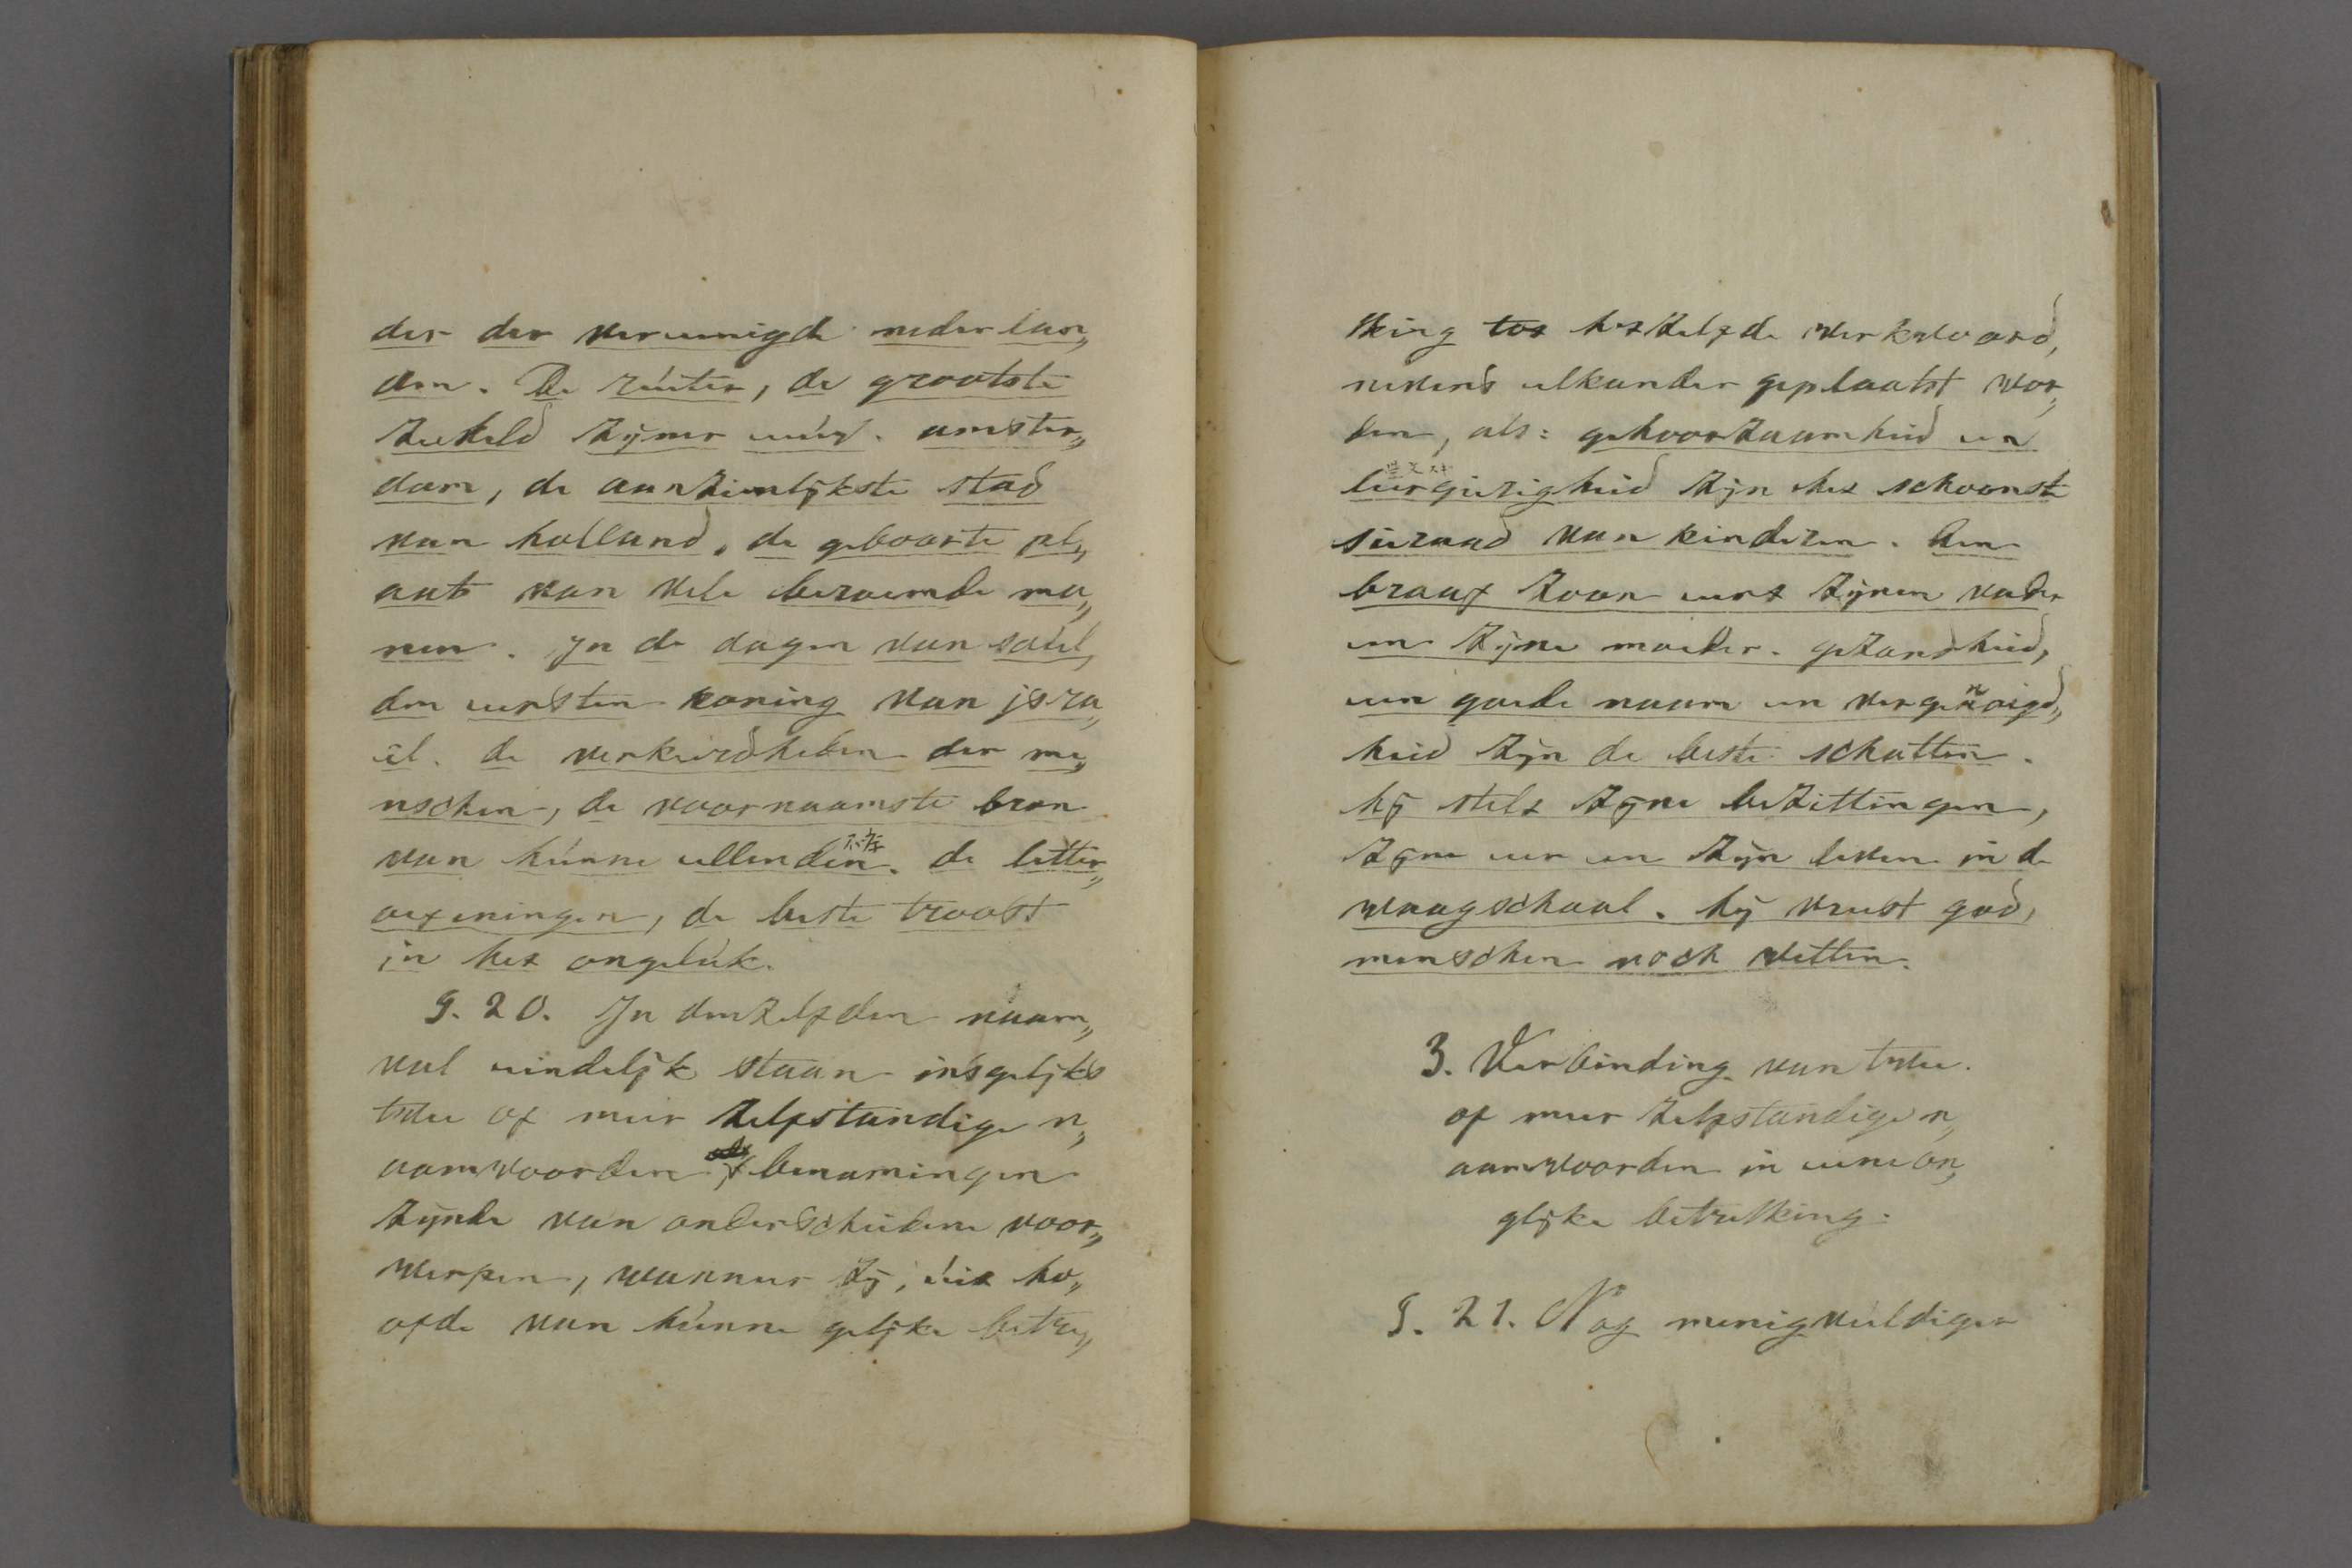 der der vereenigde nederlan„
den. De rúiter, de grootste
zeeheld zijner eeúw. amster„
dam, de aanzienlijkste stad
van holland, de geboorte pl„
aats van vele beroemde ma„
nen. In de dagen van saúl,
den eersten koning van jsra„
ël. de verkeerdheden der me„
nschen, de voornaamste bron
van húnne ellenden. de letter„
oefeningen, de beste troost
in het ongelúk.
§. 20. In denzelfden naam„
val eindelijk staan insgelijks
twee of meer zelfstandige n„
aamwoorden, benamingen
zijnde van onderscheidene voor„
werpen, wanneer zij, úit ho„
ofde van húnne gelijke betre„
kking tot hetzelfde werkwoord,
nevens elkander geplaatst wor„
den, als: gehoorzaamheid en
leergierigheid zijn het schoonste
sieraad van kinderen. Een
braaf zoon eert zijnen vader
en zijne moeder. gezondheid,
een goede naam en vergenoegd„
heid zijn de beste schatten.
hij stelt zijne bezittingen,
zijne eer en zijn leven in de
waagschaal. hij vreest god,
menschen noch wetten.
3. Verbinding van twee.
of meer zelfstandige n„
aamwoorden in eene on„
glijke betrekking.
§. 21. Nog menigvúldiger